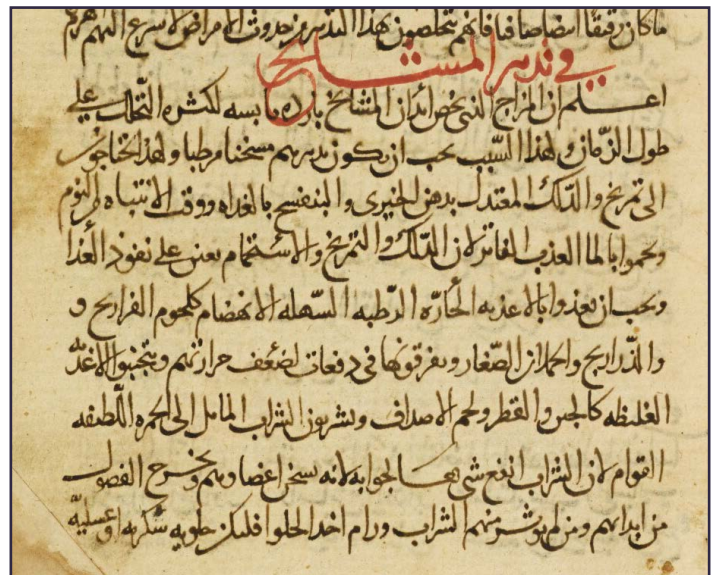 ما كان رقيقا ايضا صافيا فانهم يتخلصون بهذا التدبير من حدوث الامراض لاسرع اليهم هرم
في تدبير المشائخ
اعلم ان المزاج الذي يخص ابدان المشائخ بارده يابسه لكثره التحلل على
طول الزمان ولهذا السبب يجب ان يكون تدبيرهم مسخنا مرطبا ولهذا يحتاجون
الى تمريخ والدلك المعتدل بدهن الخيرى والبنفسج بالغداه ووقت الانتباه من النوم
ويحموا بالما العذب الفاتر لان الدلك والتمريخ والاستحمام يعين على نفوذ الغذا
ويجب ان يغذوا بالاغذيه الحاره الرطبه السهله الانهضام كلحوم الفراريج و
والدراريج والحملان الصغار ويفرقونها فى دفعات لضعف حرارتهم ويتجنبوا الاغذيه
الغليظه كالجبن والفطر ولحم الاصداف ويشربون الشراب المايل الى الحمره اللطيفه
القوام لان الشراب انفع شى لانه يسخن اعضاوهم ويخرج الفضول
من ابدانهم ومن لم منهم الشراب ورام اخذ الحلوا فليكن حلويه سكريه او عسليه